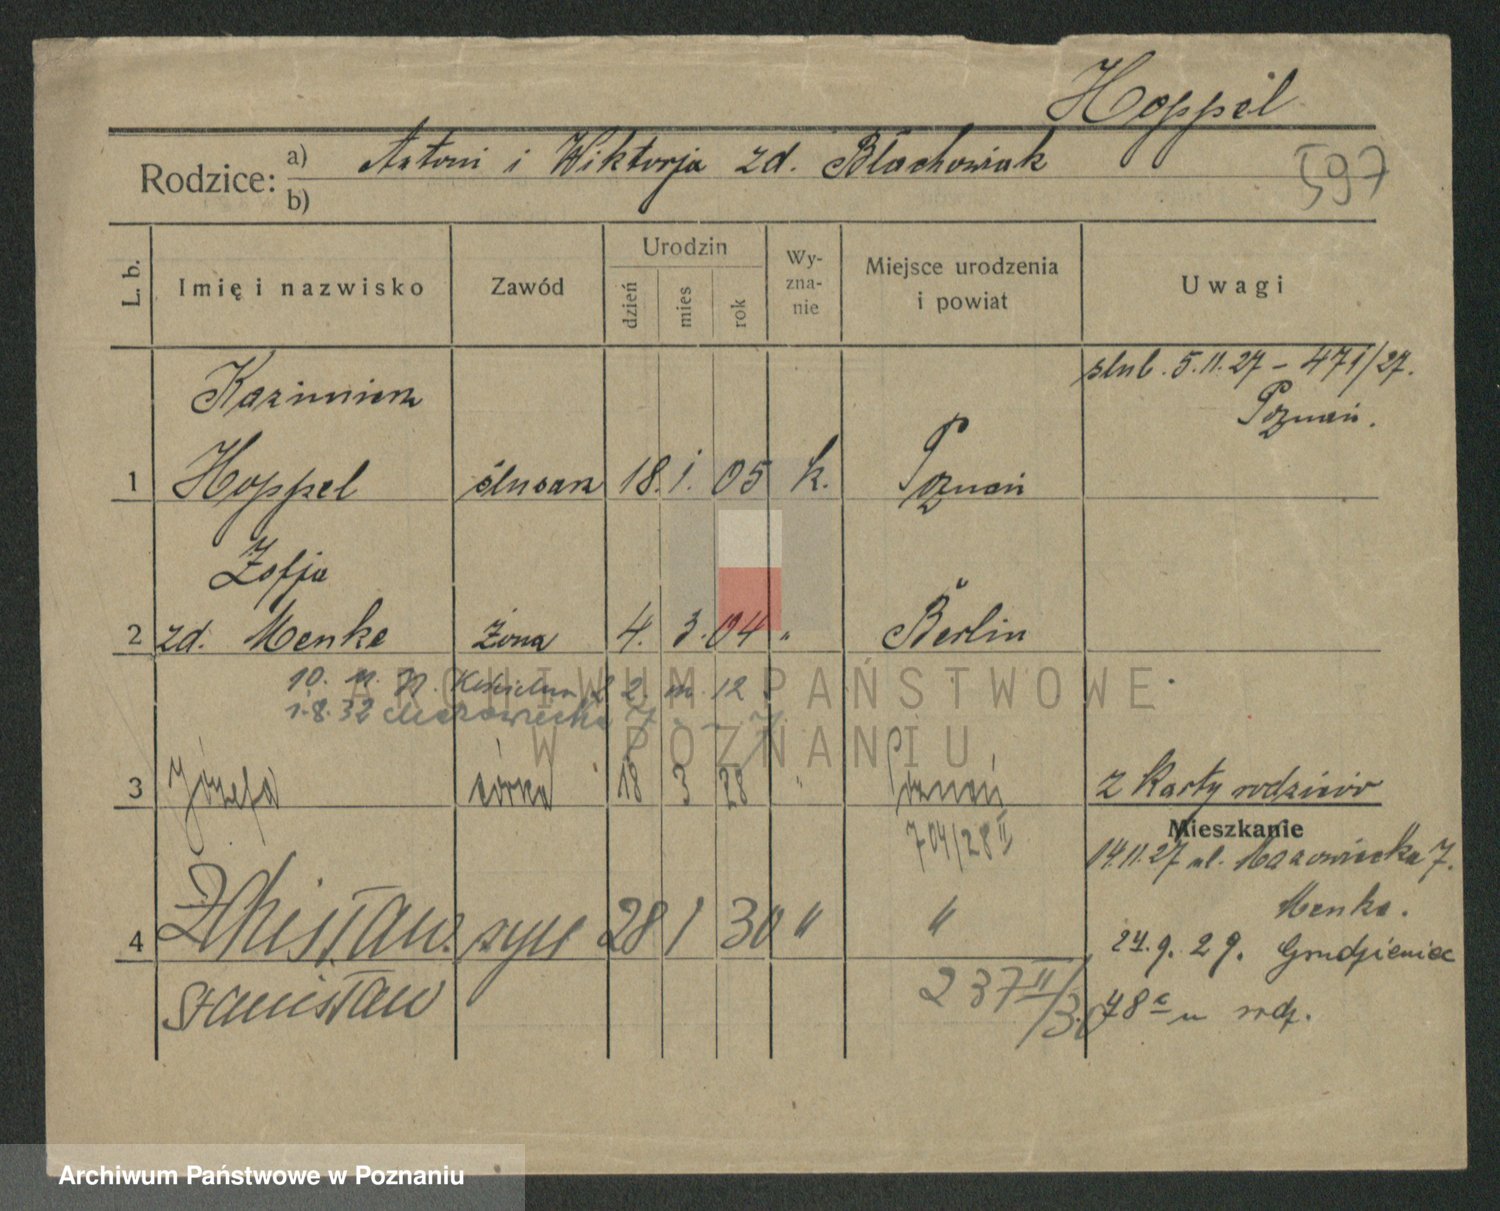 Hoppel
Rodzice: a) Antoni i Wiktorja zd. Błachowiak
b)
597
L. b. Imię i nazwisko Zawód Urodzin dzień mies rok Wyznanie Miejsce urodzenia i powiat Uwagi
ślub. 5.11.27 – 471/27.
Kazimierz Poznań.
1 Hoppel ślusarz 18. 1. 05 k. Poznań
Zofja
2 zd. Menke żona 4. 3. 04 " Berlin
10. 11. 2. m. 12
1.8.32 Mazowiecka 7
3 Józefa córka 18 3 28 " Poznań z karty rodziców
704/28 II
Mieszkanie
14.11.27 ul. Mazowiecka 7.
Menke.
4 Zdzisław syn 28 1 30 " "
24. 9. 29. Grudzieniec
Stanisław 237 II/30 48 u rodz.
ARCHIWUM PAŃSTWOWE
W POZNANIU
Archiwum Państwowe w Poznaniu